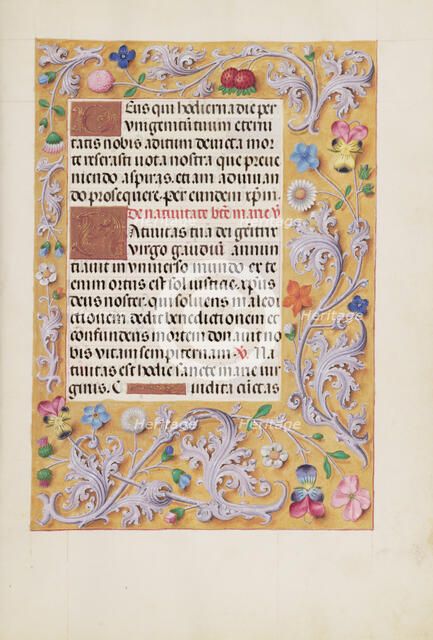 Deus qui hodierna die per
unigenitū tuum eterni
tatis nobis aditum deuicta mor
te reserasti uota nostra que preue
niendo aspiras. etiam adiuuan
do prosequere. per eundem xp̄m.
De natiuitate bt̄e marie v̄
Natiuitas tua dei genitrix
virgo gaudiū annun
tiauit in vniuerso mundo ex te
enim ortus est sol iusticie. xp̄us
deus noster. qui soluens maledi
ctionem dedit benedictionem et
confundens mortem donauit no
bis vitam sempiternam. V̄. Na
tiuitas est hodie sancte marie vir
ginis. C inclita
Heritage
Heritage
Heritage
Heritage
Heritage